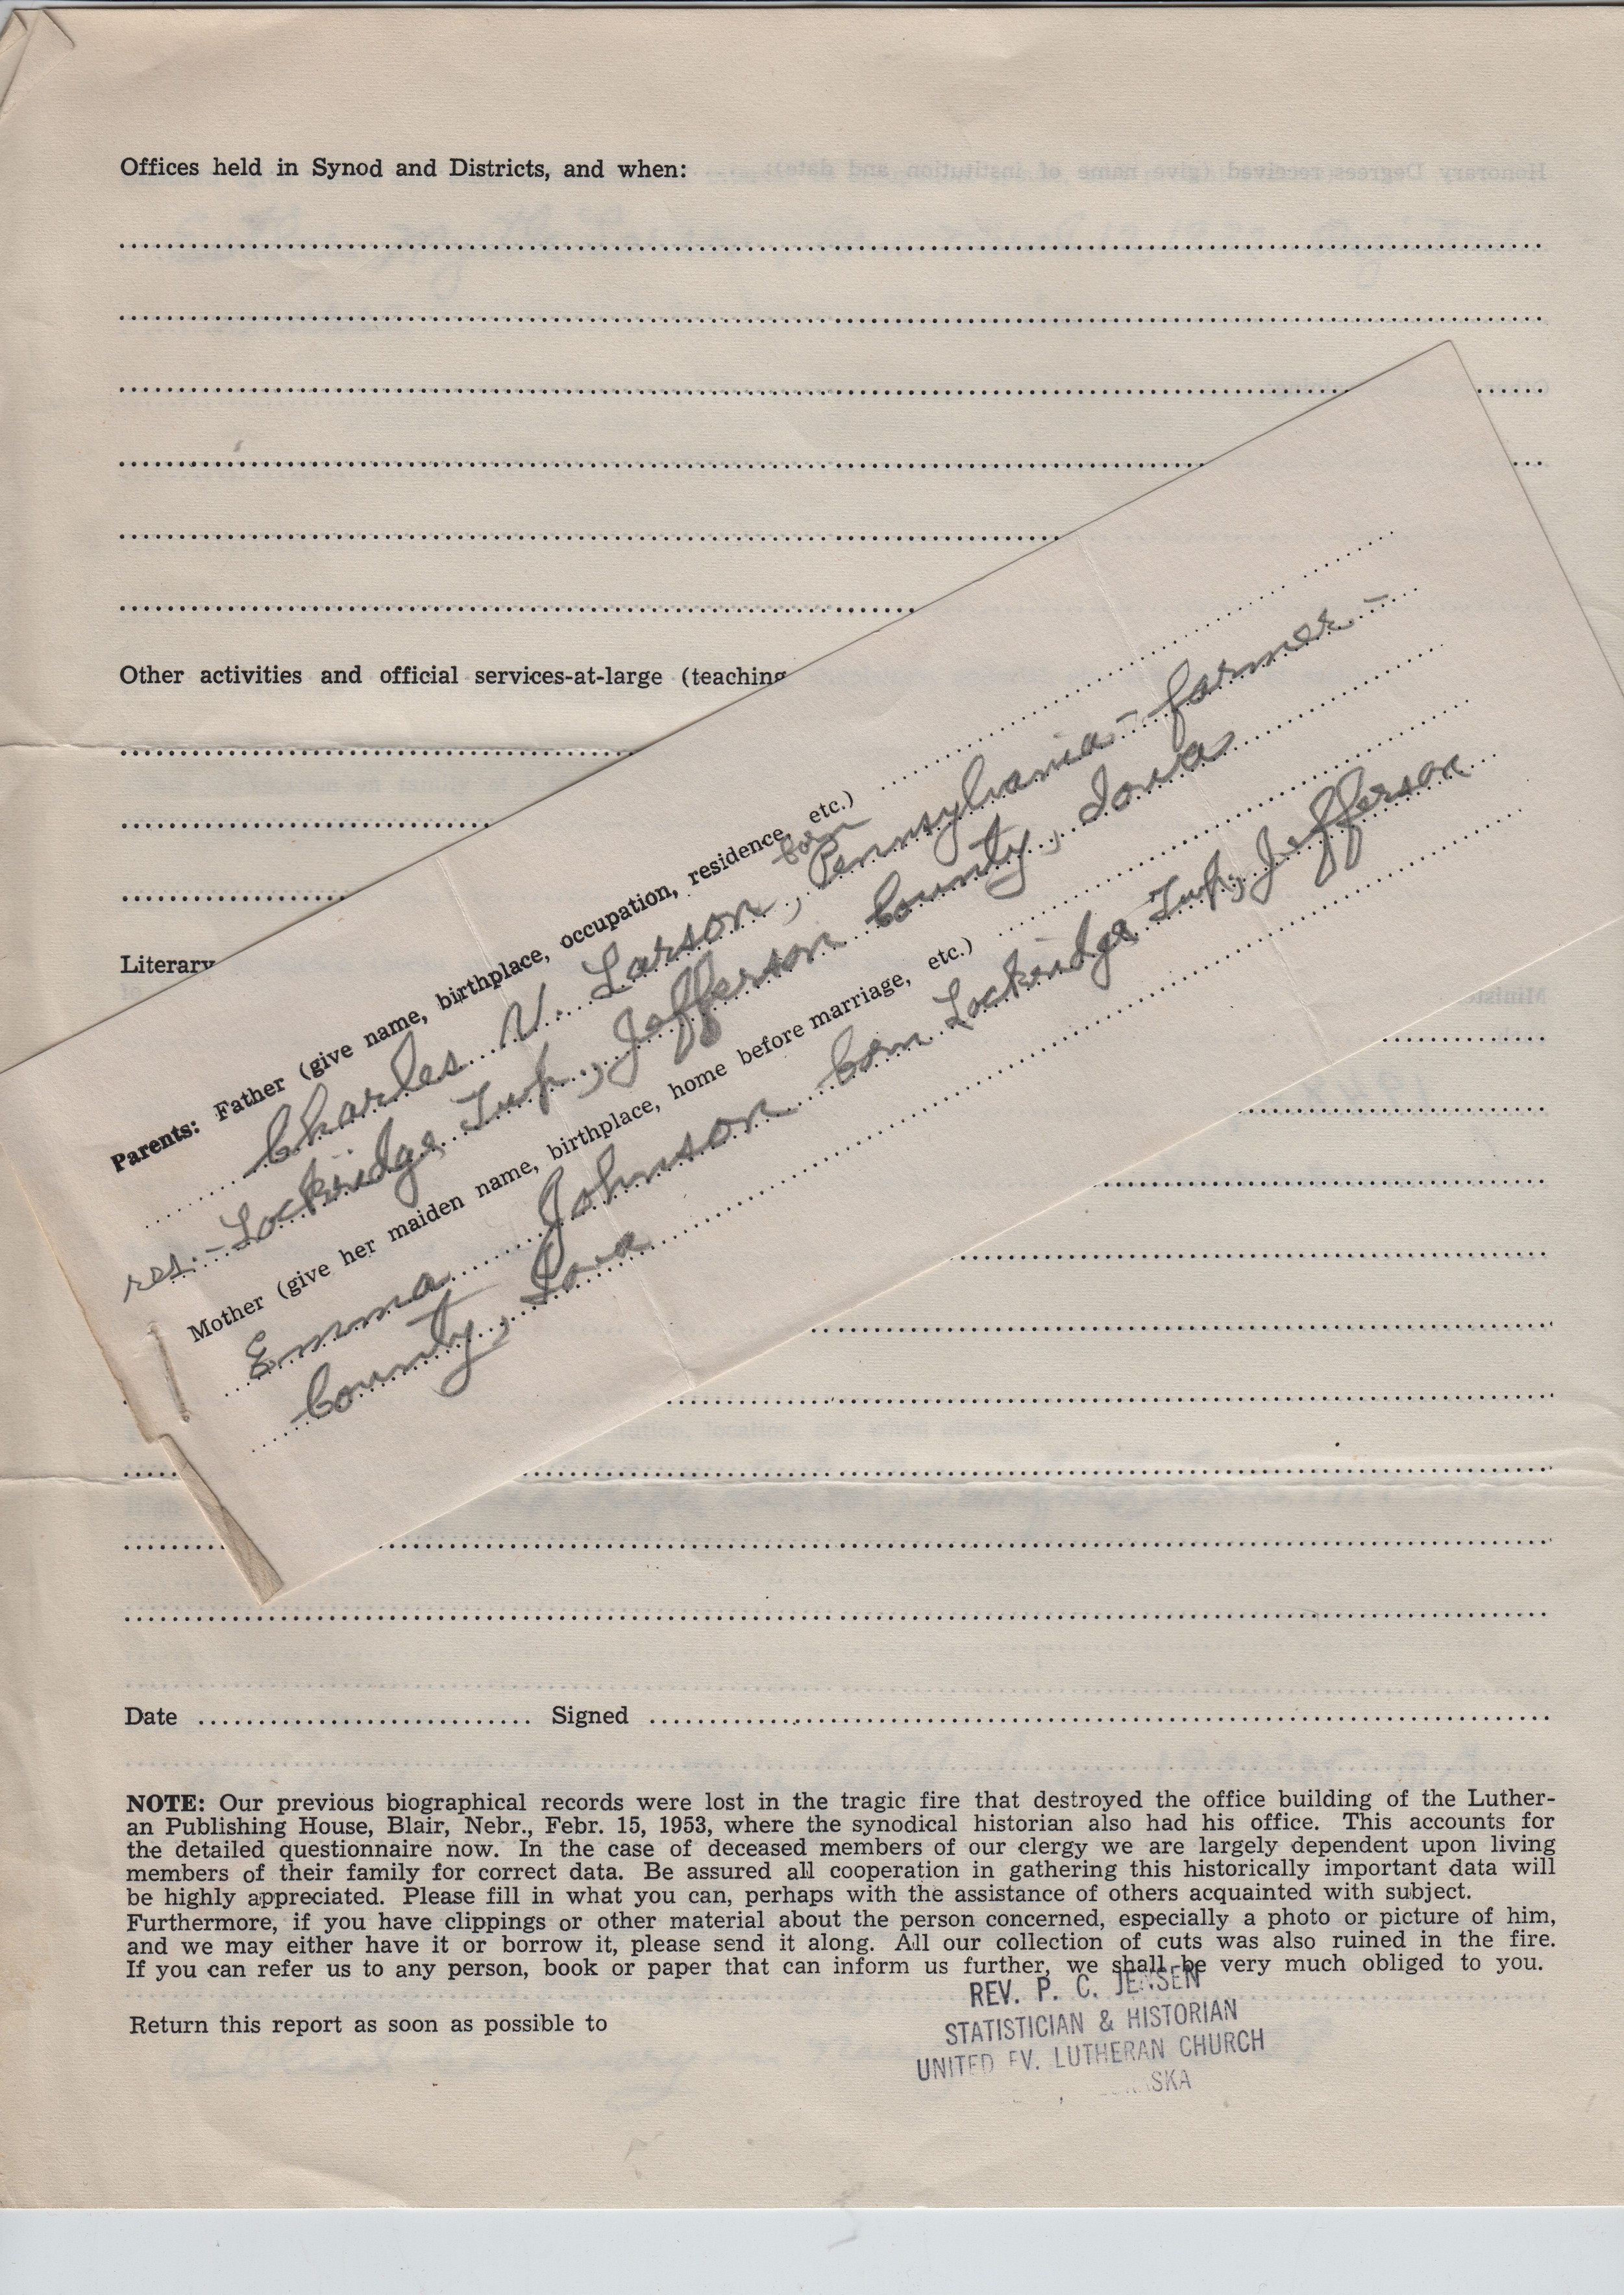 Offices held in Synod and Districts, and when:
Other activities and official services-at-large (teaching
Literary
Parents: Father (give name, birthplace, occupation, residence, etc.)
Charles V. Larson, born Pennsylvania - farmer -
res. - Lockridge Twp., Jefferson County, Iowa
Mother (give her maiden name, birthplace, home before marriage, etc.)
Emma Johnson born Lockridge Twp, Jefferson
County, Iowa
Date Signed
NOTE: Our previous biographical records were lost in the tragic fire that destroyed the office building of the Luther-
an Publishing House, Blair, Nebr., Febr. 15, 1953, where the synodical historian also had his office. This accounts for
the detailed questionnaire now. In the case of deceased members of our clergy we are largely dependent upon living
members of their family for correct data. Be assured all cooperation in gathering this historically important data will
be highly appreciated. Please fill in what you can, perhaps with the assistance of others acquainted with subject.
Furthermore, if you have clippings or other material about the person concerned, especially a photo or picture of him,
and we may either have it or borrow it, please send it along. All our collection of cuts was also ruined in the fire.
If you can refer us to any person, book or paper that can inform us further, we shall be very much obliged to you.
Return this report as soon as possible to
REV. P. C. JENSEN
STATISTICIAN & HISTORIAN
UNITED EV. LUTHERAN CHURCH